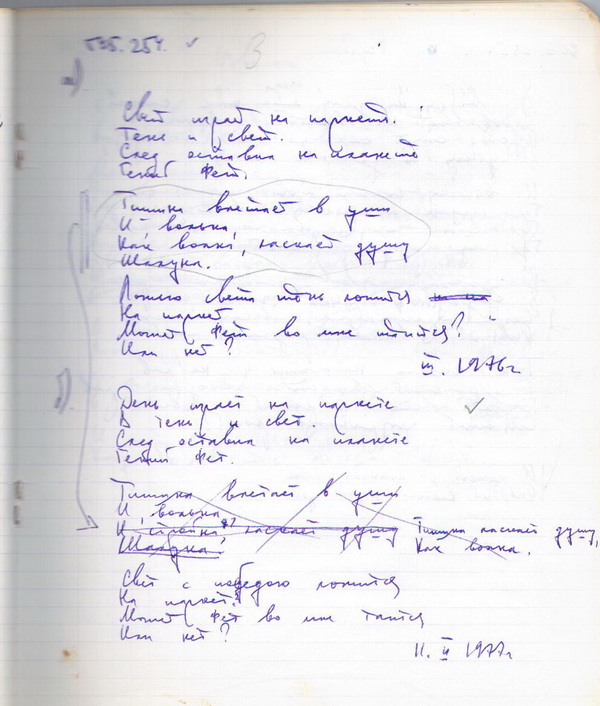 Свет играет на паркете.
Тень и свет.
След оставил на планете
Гений Фет.
Тишина влетает в уши
И вольна,
Как волна, ласкает душу
Шалуна.
Ложится
На паркет.
Может Фет во мне таится?
Или нет?
III. 1976 г
День играет на паркете
В тень и свет.
След оставил на планете
Гений Фет.
Тишина влетает в уши
И, вольна
ласкает душу Тишина ласкает душу,
Шалуна. Как волна.
Свет с победою ложится
На паркет.
Может Фет во мне таится
Или нет?
11. II 1977 г